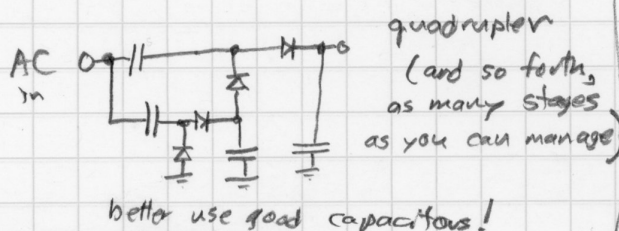 AC
in
quadrupler
(and so forth,
as many stages
as you can manage)
better use good capacitors!